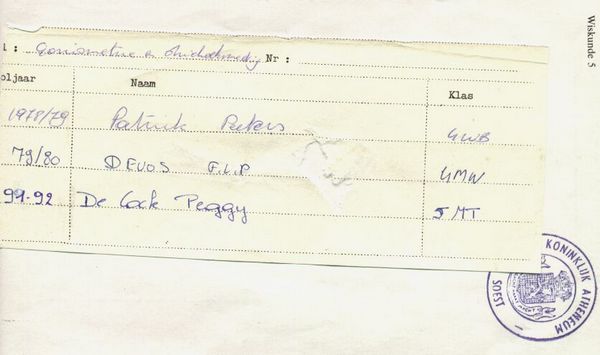 Wiskunde 5
: Goniometrie & driehoeksmeting Nr :
oljaar Naam Klas
1978/79 Patrick Peeters 4WB
79/80 DEVOS FILIP 4MW
91-92 De Cock Peggy 5 MT
KONINKLIJK ATHENEUM
SOEST